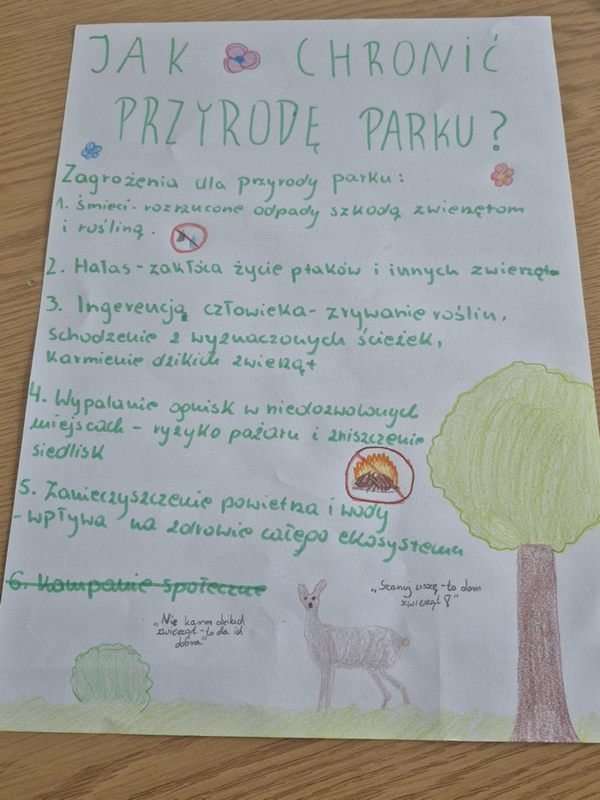 JAK CHRONIĆ
PRZYRODĘ PARKU?
Zagrożenia dla przyrody parku:
1. Śmieci - rozrzucone odpady szkodą zwierzętom
i rośliną.
2. Hałas - zakłóca życie ptaków i innych zwierząt
3. Ingerencją człowieka - zrywanie roślin,
schodzenie z wyznaczonych ścieżek,
karmienie dzikich zwierząt
4. Wypalanie ognisk w niedozwolonych
miejscach - ryzyko pożaru i zniszczenie
siedlisk
5. Zanieczyszczenie powietrza i wody
- wpływa na zdrowie całego ekosystemu
6. Kampanie społeczne
„Szanuj -to dom
zwierząt!"
„Nie karm dzikich
zwierząt -to dla ich
dobra"